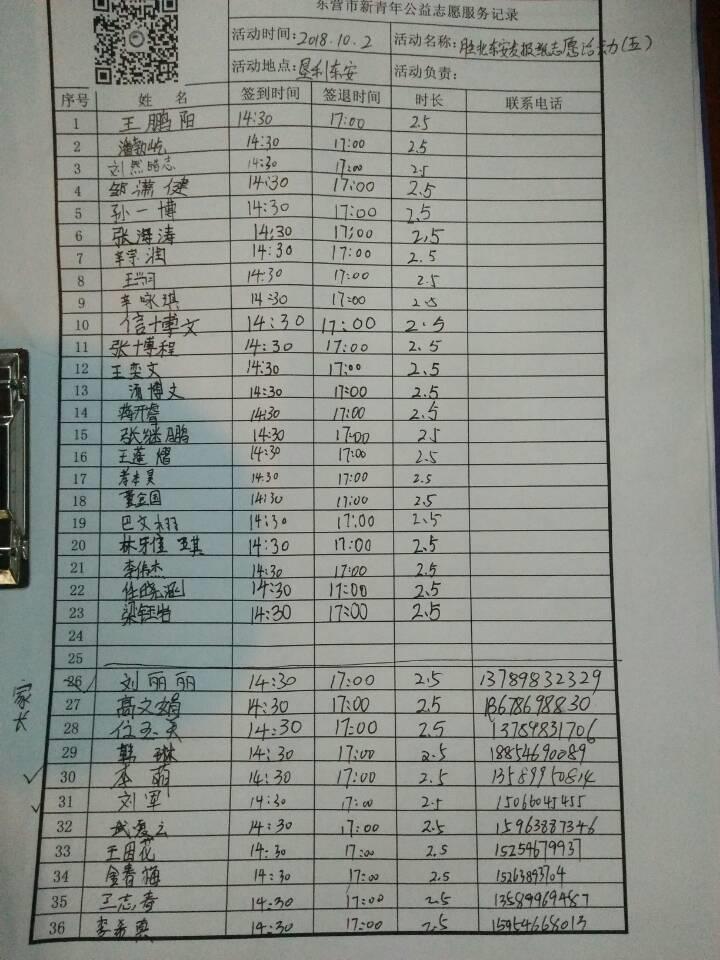 东营市新青年公益志愿服务记录
活动时间: 2018.10.2 活动名称: 胜北东安卖报纸志愿活动(五)
活动地点: 垦利东安 活动负责:
序号 姓 名 签到时间 签退时间 时长 联系电话
1 王鹏阳 14:30 17:00 2.5
2 14:30 17:00 2.5
3 刘然皓志 14:30 17:00 2.5
4 邹潇健 14:30 17:00 2.5
5 孙一博 14:30 17:00 2.5
6 张海涛 14:30 17:00 2.5
7 辛宗润 14:30 17:00 2.5
8 14:30 17:00 2.5
9 辛咏琪 14:30 17:00 2.5
10 信博文 14:30 17:00 2.5
11 张博程 14:30 17:00 2.5
12 王奕文 14:30 17:00 2.5
13 博文 14:30 17:00 2.5
14 蒋开睿 14:30 17:00 2.5
15 张继鹏 14:30 17:00 2.5
16 王莲熠 14:30 17:00 2.5
17 14:30 17:00 2.5
18 董金国 14:30 17:00 2.5
19 巴文栩 14:30 17:00 2.5
20 林子佳 王琪 14:30 17:00 2.5
21 李伟杰 14:30 17:00 2.5
22 任晓涵 14:30 17:00 2.5
23 梁钰怡 14:30 17:00 2.5
24
25
家长
26 刘丽丽 14:30 17:00 2.5 13789832329
27 高文娟 14:30 17:00 2.5 13678698830
28 14:30 17:00 2.5 13789831706
29 韩琳 14:30 17:00 2.5 18854690089
30 李萌 14:30 17:00 2.5 13589950814
31 刘军 14:30 17:00 2.5 15066045455
32 武爱云 14:30 17:00 2.5 15963887346
33 王田花 14:30 17:00 2.5 15254679937
34 金春梅 14:30 17:00 2.5 15263893704
35 王志奇 14:30 17:00 2.5 13589969487
36 李希真 14:30 17:00 2.5 15954668013